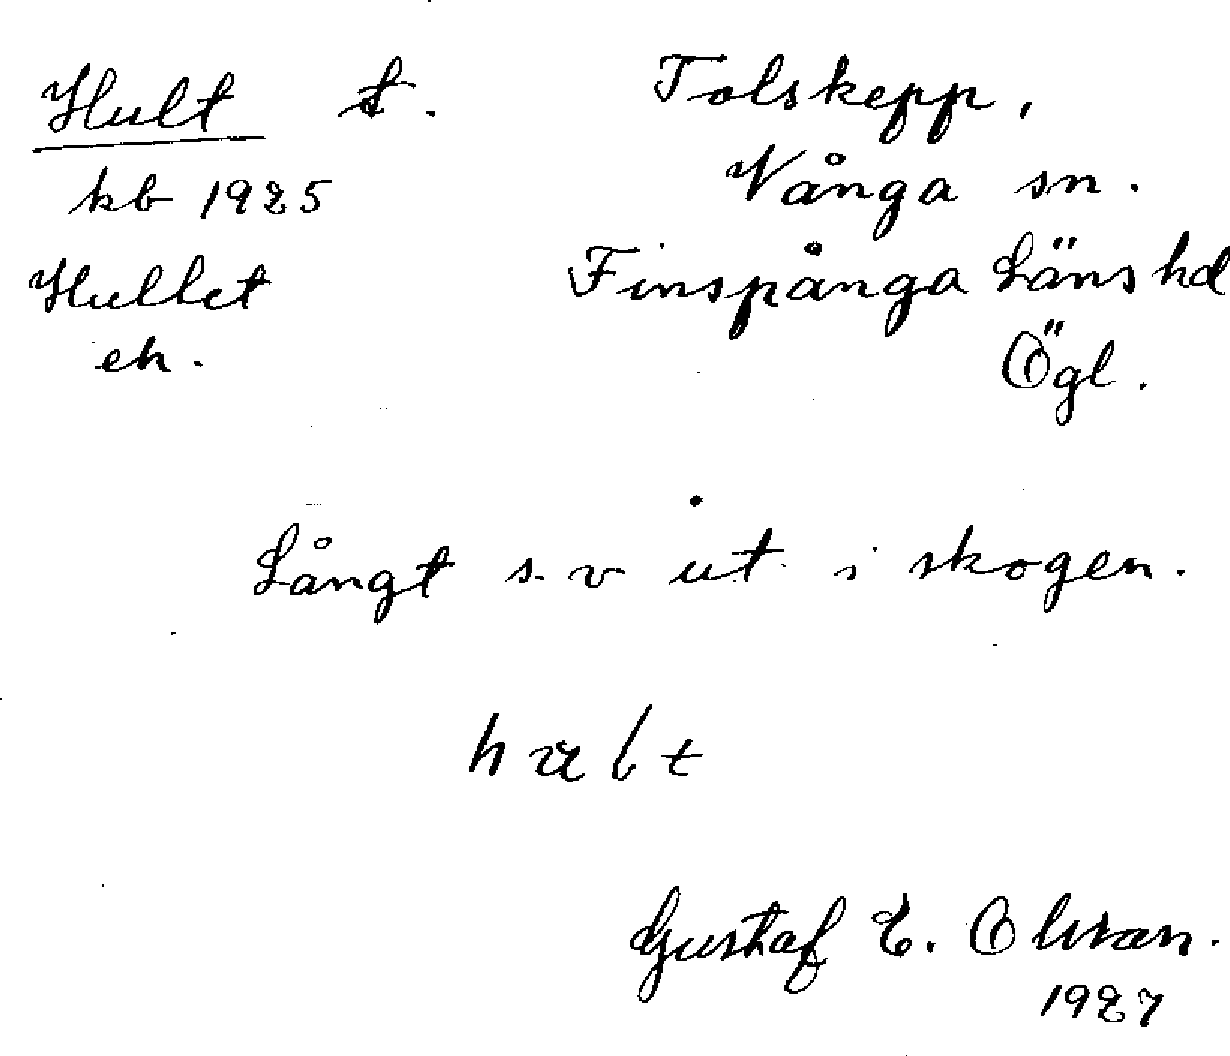 Hult t.
kb 1925
Hultet
ek.
Tolskepp,
Vånga sn.
Finspånga Läns hd
Ögl.
Långt s.v ut i skogen.
Gustaf E. Olsson.
1927